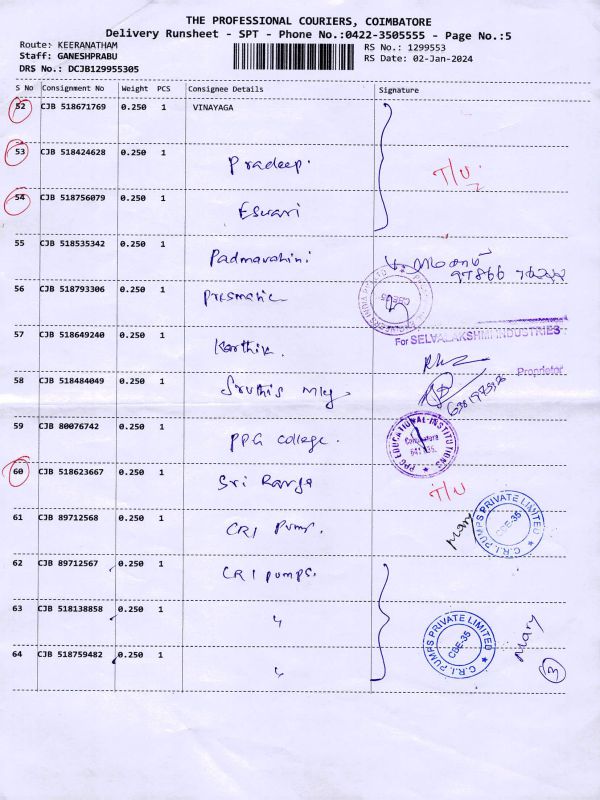 THE PROFESSIONAL COURIERS, COIMBATORE
Delivery Runsheet - SPT - Phone No.:0422-3505555 - Page No.:5
Route: KEERANATHAM
RS No.: 1299553
Staff: GANESHPRABU
RS Date: 02-Jan-2024
DRS No.: DCJB129955305
S No Consignment No Weight PCS Consignee Details Signature
52 CJB 518671769 0.250 1 VINAYAGA
53 CJB 518424628 0.250 1 Pradeep. T/U
54 CJB 518756079 0.250 1 Eswari
55 CJB 518535342 0.250 1 Padmavahini
56 CJB 518793306 0.250 1 Presmatic
For SELVALAKSHMI INDUSTRIES
57 CJB 518649240 0.250 1 Karthik.
Proprietor
58 CJB 518484049 0.250 1 Sruthis Mlg
59 CJB 80076742 0.250 1 PPG College.
PPG EDUCATIONAL INSTITUTIONS
Coimbatore
641 035.
60 CJB 518623667 0.250 1 Sri Ranga T/U
61 CJB 89712568 0.250 1 CRI Pump. Mary
C.R.I. PUMPS PRIVATE LIMITED
CBE-35
62 CJB 89712567 0.250 1 CRI pumps.
63 CJB 518138858 0.250 1 "
C.R.I. PUMPS PRIVATE LIMITED
CBE-35
Mary
64 CJB 518759482 0.250 1 "
3